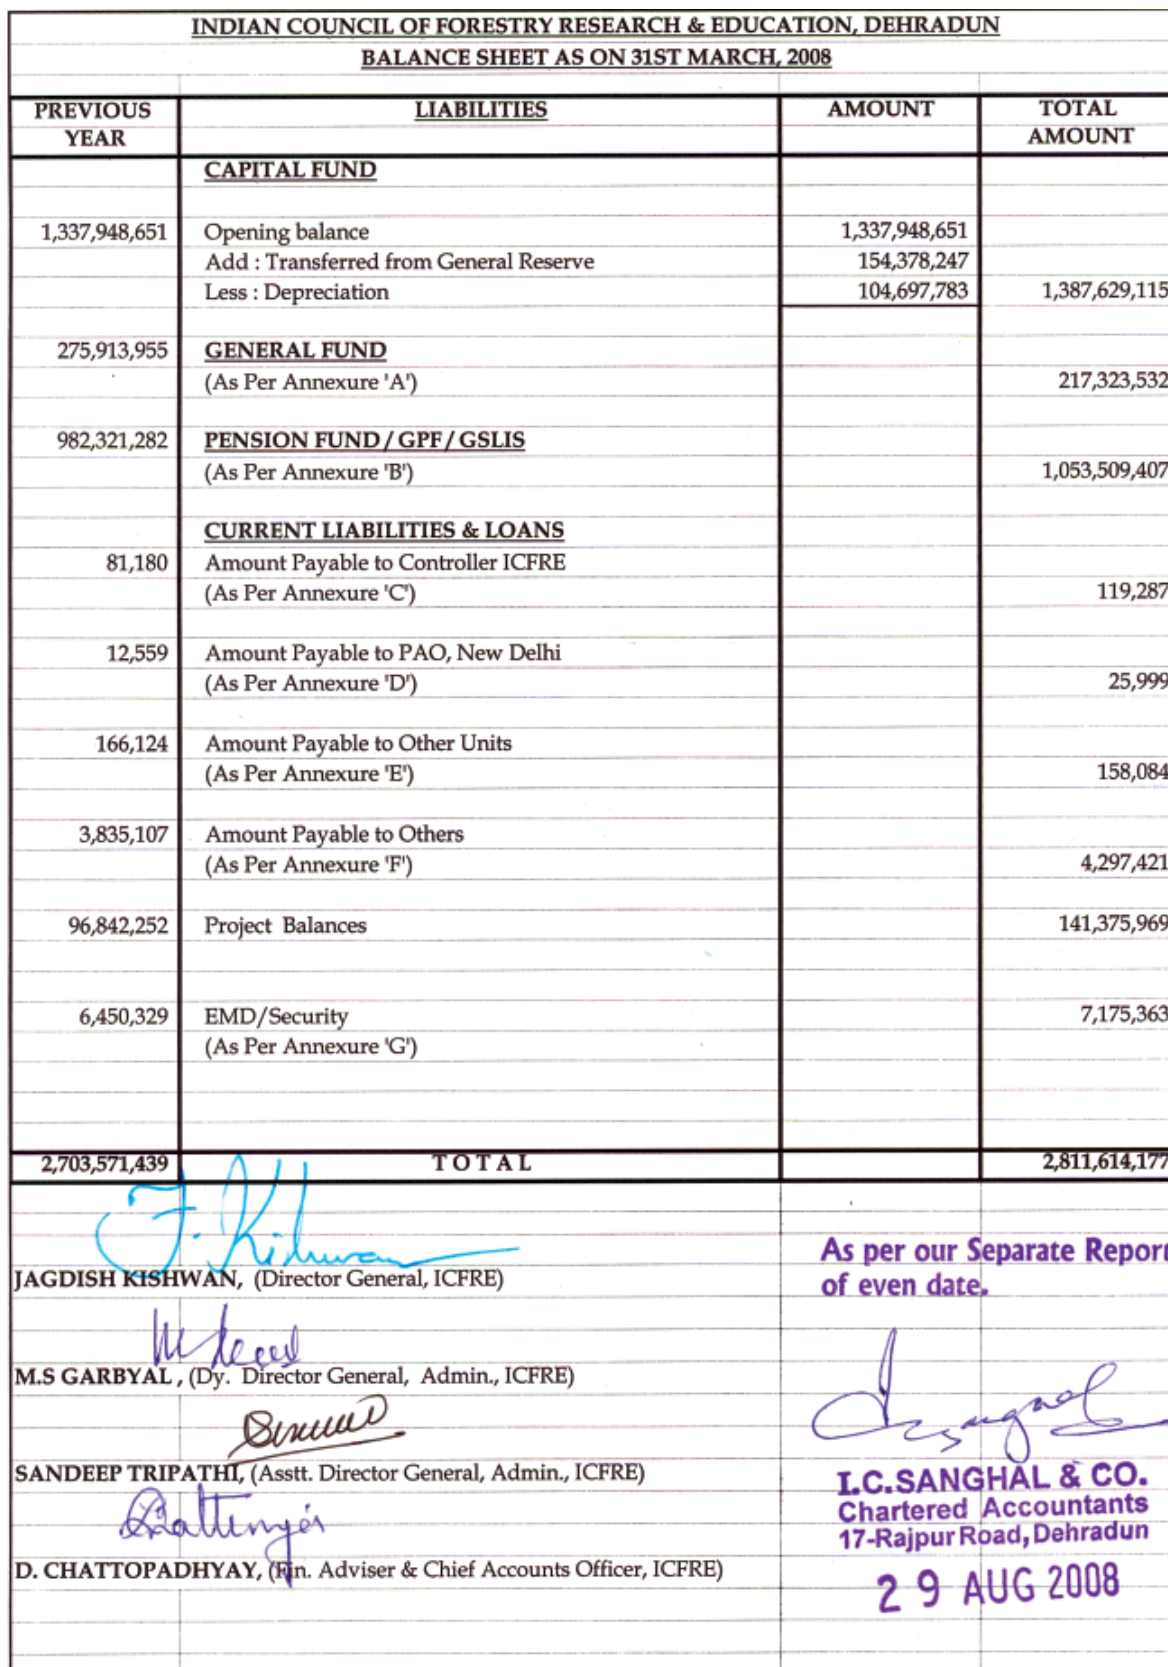 INDIAN COUNCIL OF FORESTRY RESEARCH & EDUCATION, DEHRADUN
BALANCE SHEET AS ON 31ST MARCH, 2008
PREVIOUS YEAR LIABILITIES AMOUNT TOTAL AMOUNT
CAPITAL FUND
1,337,948,651 Opening balance 1,337,948,651
Add : Transferred from General Reserve 154,378,247
Less : Depreciation 104,697,783 1,387,629,115
275,913,955 GENERAL FUND
(As Per Annexure 'A') 217,323,532
982,321,282 PENSION FUND / GPF / GSLIS
(As Per Annexure 'B') 1,053,509,407
CURRENT LIABILITIES & LOANS
81,180 Amount Payable to Controller ICFRE
(As Per Annexure 'C') 119,287
12,559 Amount Payable to PAO, New Delhi
(As Per Annexure 'D') 25,999
166,124 Amount Payable to Other Units
(As Per Annexure 'E') 158,084
3,835,107 Amount Payable to Others
(As Per Annexure 'F') 4,297,421
96,842,252 Project Balances 141,375,969
6,450,329 EMD/Security 7,175,363
(As Per Annexure 'G')
2,703,571,439 TOTAL 2,811,614,177
J. Kishwan
JAGDISH KISHWAN, (Director General, ICFRE)
As per our Separate Report
of even date.
M.S GARBYAL , (Dy. Director General, Admin., ICFRE)
SANDEEP TRIPATHI, (Asstt. Director General, Admin., ICFRE)
I.C.SANGHAL & CO.
Chartered Accountants
17-Rajpur Road, Dehradun
D. CHATTOPADHYAY, (Fin. Adviser & Chief Accounts Officer, ICFRE)
29 AUG 2008